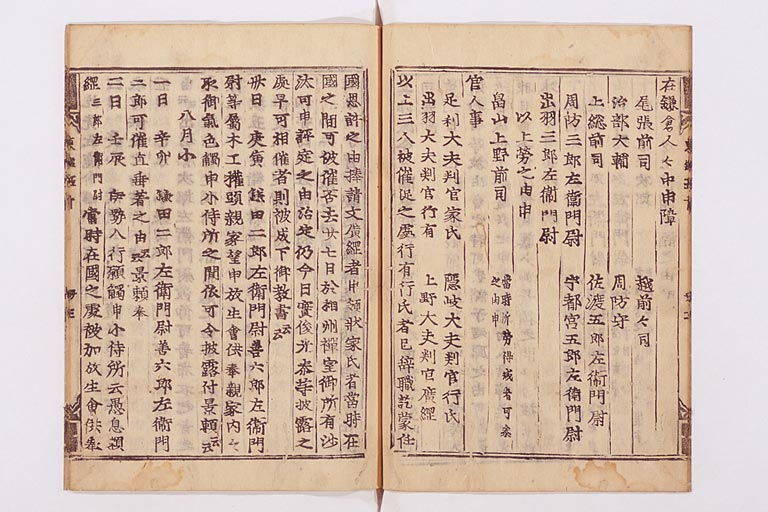 在鎌倉人々中申障
尾張前司 越前々司
治部大輔 周防守
上総前司 佐渡五郎左衛門尉
周防三郎左衛門尉 宇都宮五郎左衛門尉
出羽三郎左衛門尉
以上労之由申
畠山上野前司
官人事
足利大夫判官家氏 隠岐大夫判官行氏
出羽大夫判官行有 上野大夫判官廣經
以上三人被催促之處行有行氏者已辞職訖蒙仕
國恩許之由捧請文廣經者申領状家氏者當時在
國之間可被催否去廿七日於相州禅室御所有沙
汰可申評定之由治定仍今日實俊光泰等披露之
處早可相催者則被成下御教書云云
廿日 庚寅 鎌田二郎左衛門尉善六郎左衛門
尉等属木工權頭親家望申放生會供奉親家内々
取御氣色觸申小侍所之間依可令披露付景頼云云
八月小
一日 辛卯 鎌田二郎左衛門尉善六郎左衛門
二郎可催直垂著之由云云景頼奉
二日 壬辰 伊勢入行願觸申小侍所云愚息頴
經三郎左衛門尉當時在國之處被加放生會供奉